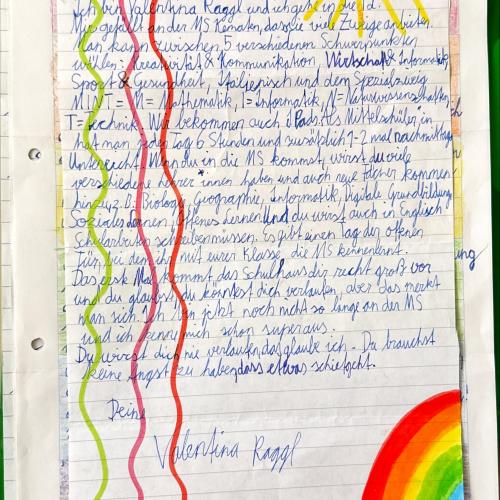 Ich bin Valentina Raggl und ich gehe in die 1d.
Mir gefällt an der MS Kematen, dass sie viele Zweige anbieten.
Man kann zwischen 5 verschiedenen Schwerpunkten
wählen: Kreativität & Kommunikation, Wirtschaft & Informatik,
Sport & Gesundheit, Italienisch und dem Spezialzweig
MINT = M = Mathematik, I = Informatik, N = Naturwissenschaften,
T = Technik. Wir bekommen auch iPads. Als Mittelschüler/in
hat man jeden Tag 6 Stunden und zusätzlich 1-2 mal nachmittags
Unterricht. Wenn du in die MS kommst, wirst du viele
verschiedene Lehrer*innen haben und auch neue Fächer kommen
hinzu z.B.: Biologie, Geographie, Informatik, Digitale Grundbildung,
Soziales Lernen, Offenes Lernen und du wirst auch in Englisch
Schularbeiten schreiben müssen. Es gibt einen Tag der offenen
Tür, bei dem ihr mit eurer Klasse die MS kennenlernt.
Das erste Mal kommt das Schulhaus dir recht groß vor
und du glaubst du könntest dich verlaufen, aber das merkt
man sich. Ich bin jetzt noch nicht so lange an der MS
und ich kenne mich schon super aus.
Du wirst dich nie verlaufen, das glaube ich. Du brauchst
keine Angst zu haben, dass etwas schiefgeht.
Deine
Valentina Raggl
ung